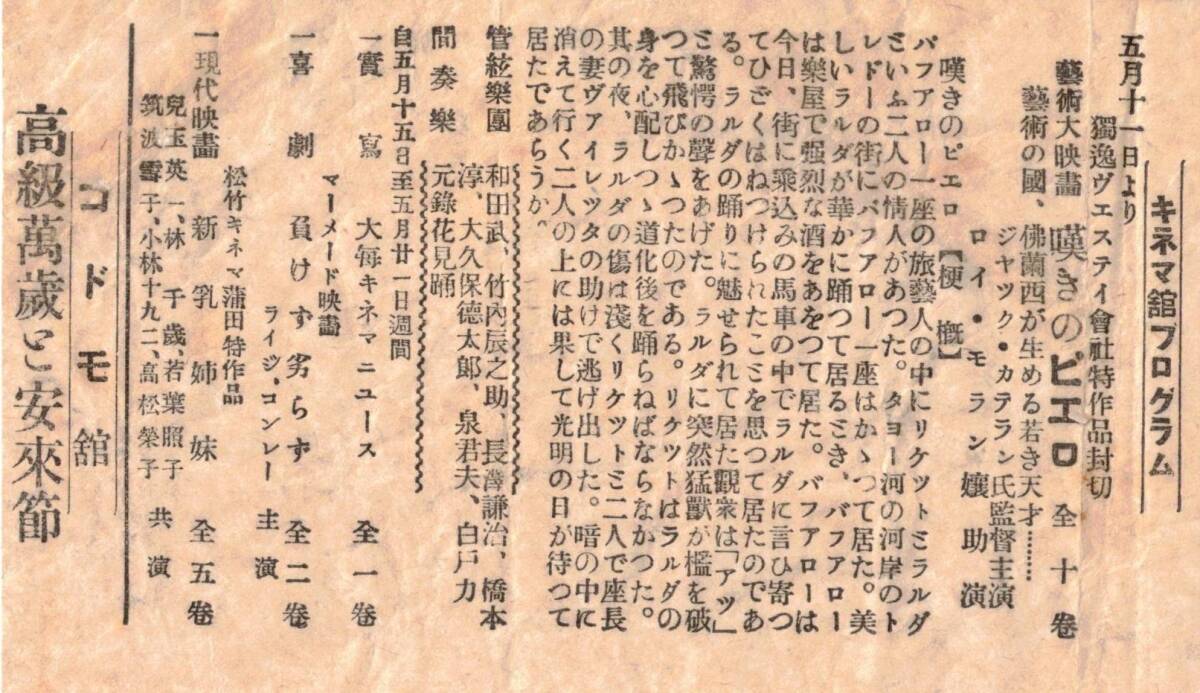 キネマ舘プログラム
五月十一日より
獨逸ヴエステイ會社特作品封切
藝術大映畵 嘆きのピエロ 全十卷
藝術の國、佛蘭西が生める若き天才………
ジヤツク・カテラン氏監督主演
ロイ・モラン孃助演
嘆きのピエロ【梗概】
バフアロー一座の旅藝人の中にリケツトミラルダ
といふ二人の情人があつた。タヨー河の河岸のト
レドーの街にバフアロー一座はかゝつて居た。美
しいラルダが華かに踊つて居るとき、バフアロー
は樂屋で强烈な酒をあをつて居た。バフアローは
今日、街に乘込みの馬車の中でラルダに言ひ寄つ
てひどくはねつけられたことを思つて居たのであ
る。ラルダの踊りに魅せられて居た觀衆は「アツ」
ミ驚愕の聲をあげた。ラルダに突然猛獸が檻を破
つて飛びかゝつたのである。リケツトはラルダの
身を心配しつゝ道化後を踊らねばならなかつた。
其の夜、ラルダの傷は淺くリケツトミ二人で座長
の妻ヴアイレツタの助けで逃げ出した。暗の中に
消えて行く二人の上には果して光明の日が待つて
居たであらうか。
管絃樂團 和田武、竹內辰之助、長澤謙治、橋本
淳、大久保德太郞、泉君夫、白戸力
間奏樂 元錄花見踊
自五月十五日至五月廿一日週間
一實寫 大每キネマニユース 全一卷
マーメード映畵
一喜劇 負けず劣らず 全二卷
ライジ、コンレー主演
松竹キネマ蒲田特作品
一現代映畵 新乳姉妹 全五卷
兒玉英一、林千歲、若葉照子
筑波雪子、小林十九二、高松榮子 共演
コドモ舘
高級萬歲と安來節